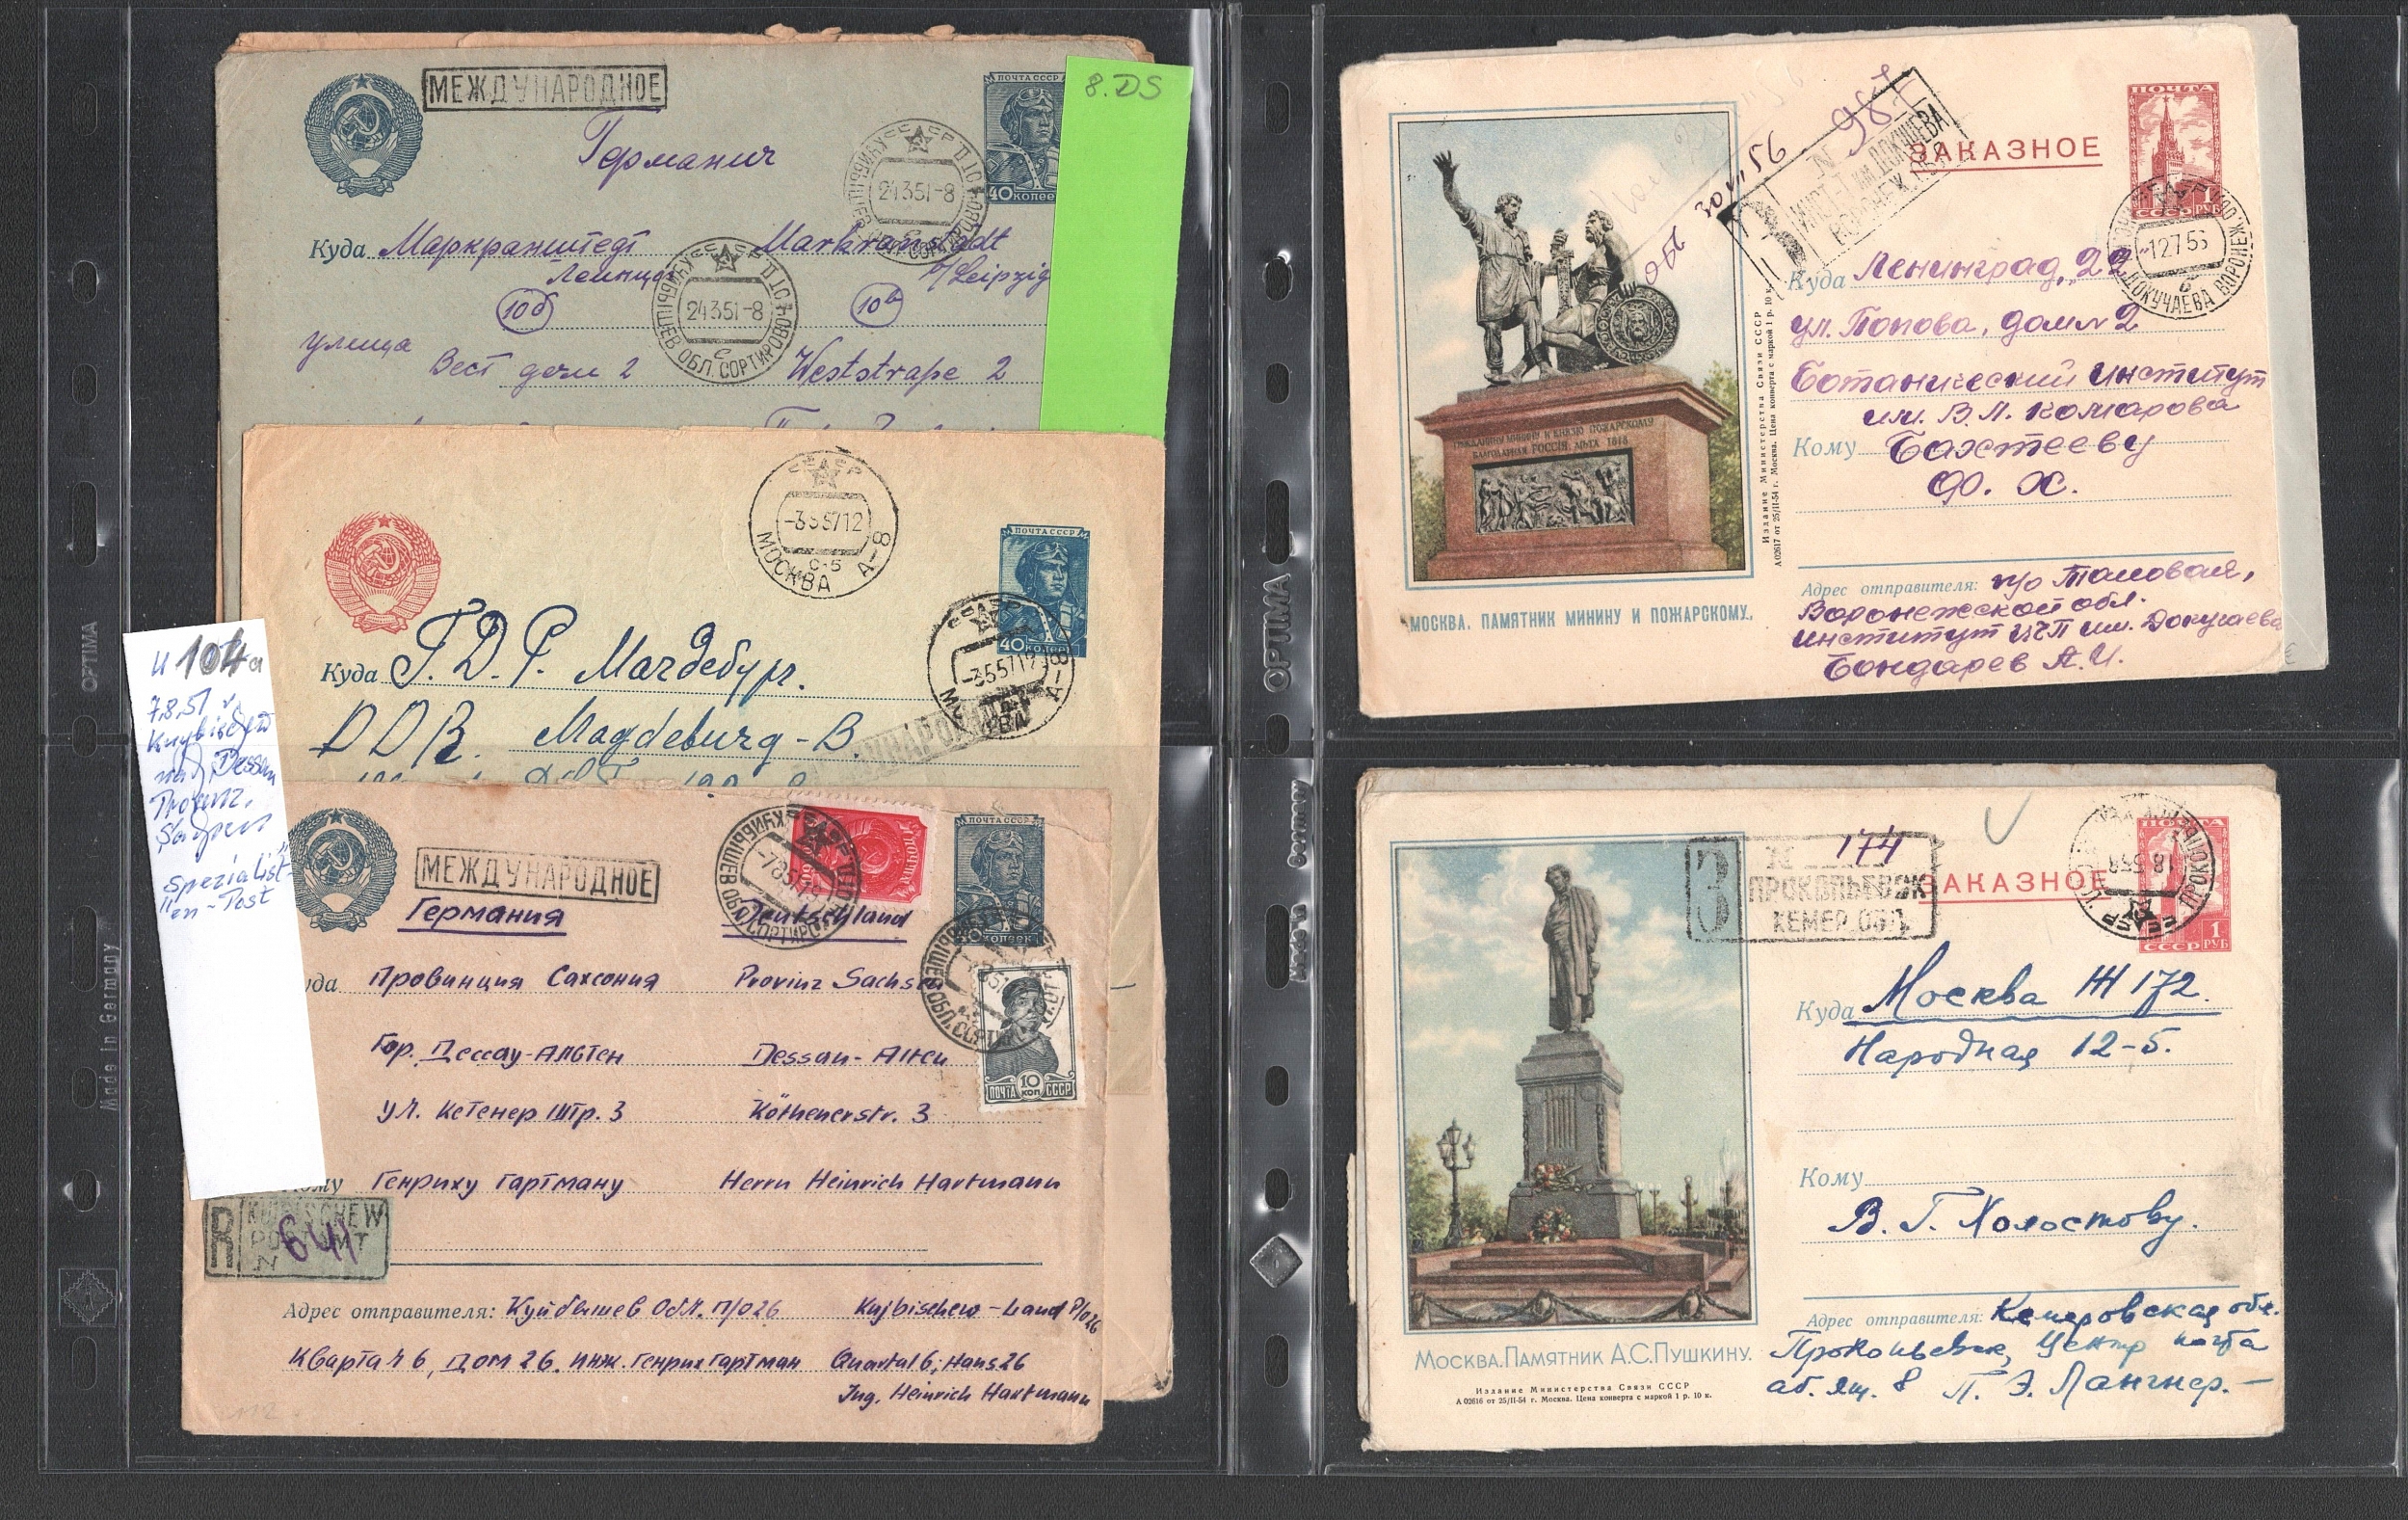 МЕЖДУНАРОДНОЕ
ПОЧТА СССР
8.DS
Германич
24351-8
40 копеек
Куда Маркранштедт Markranstädt
Лейпциг b/Leipzig
10б 10b
24351-8
КУЙБЫШЕВ ОБЛ. СОРТИРОВОЧ.
улица Вест дом 2 Weststraße 2
МОСКВА А-8
ПОЧТА СССР
40 копеек
Куда Г.Д.Р. Магдебург.
DDR. Magdeburg-B.
И 104a
7.8.51 v.
Kuybischew
nach Dessau
Provinz.
Sachsen
"Spezialist-
en-Post
МЕЖДУНАРОДНОЕ
ПОЧТА СССР
Германия Deutschland
КУЙБЫШЕВ ОБЛ. СОРТИРОВОЧ.
Провинция Саксония Provinz Sachsen
Гор. Дессау-Алътен Dessau-Alten
10
ПОЧТА КОП СССР
ул. Кетенер штр. 3 Köthenerstr. 3
Кому Генриху Гартману Herrn Heinrich Hartmann
R KUIBISCHEW
POSTAMT
N 641
Адрес отправителя: Куйбышев обл. п/о 26 Kujbischew-Land P/o 26
Квартал 6, дом 26. инж. Генрих Гартман Quartal 6; Haus 26
Ing. Heinrich Hartmann
OPTIMA
Made in Germany
OPTIMA
Made in Germany
ПОЧТА
1 РУБ
СССР
ЗАКАЗНОЕ
N 987
ИНСТ-Т ИМ. ДОКУЧЕВА
ВОРОНЕЖ.
ГРАЖДАНИНУ МИНИНУ И КНЯЗЮ ПОЖАРСКОМУ
БЛАГОДАРНАЯ РОССІЯ. ЛѢТА 1818
МОСКВА. ПАМЯТНИК МИНИНУ И ПОЖАРСКОМУ.
Издание Министерства Связи СССР
А 02617 от 25/II-54 г. Москва. Цена конверта с маркой 1 р. 10 к.
-12756
ДОКУЧАЕВА ВОРОНЕЖ.ОБЛ
Куда Ленинград, 22
ул. Попова, дом № 2
Ботанический институт
им. В.Л. Комарова
Кому Бахтееву
Ф. Х.
Адрес отправителя: п/о Таловая,
Воронежской обл.
Институт ЦЧП им. Докучаева
Бондарев А.И.
ПОЧТА
1 РУБ
СССР
ЗАКАЗНОЕ
З N 174
ПРОКОПЬЕВСК
КЕМЕР. ОБЛ.
Куда Москва Ж 172.
Народная 12-5.
Кому
В. Г. Холостову.
Адрес отправителя: Кемеровская обл.
Прокопьевск, Центр почта
аб. ящ. 8 П. Э. Лангнер.-
МОСКВА. ПАМЯТНИК А.С.ПУШКИНУ.
Издание Министерства Связи СССР
А 02616 от 25/II-54 г. Москва. Цена конверта с маркой 1 р. 10 к.